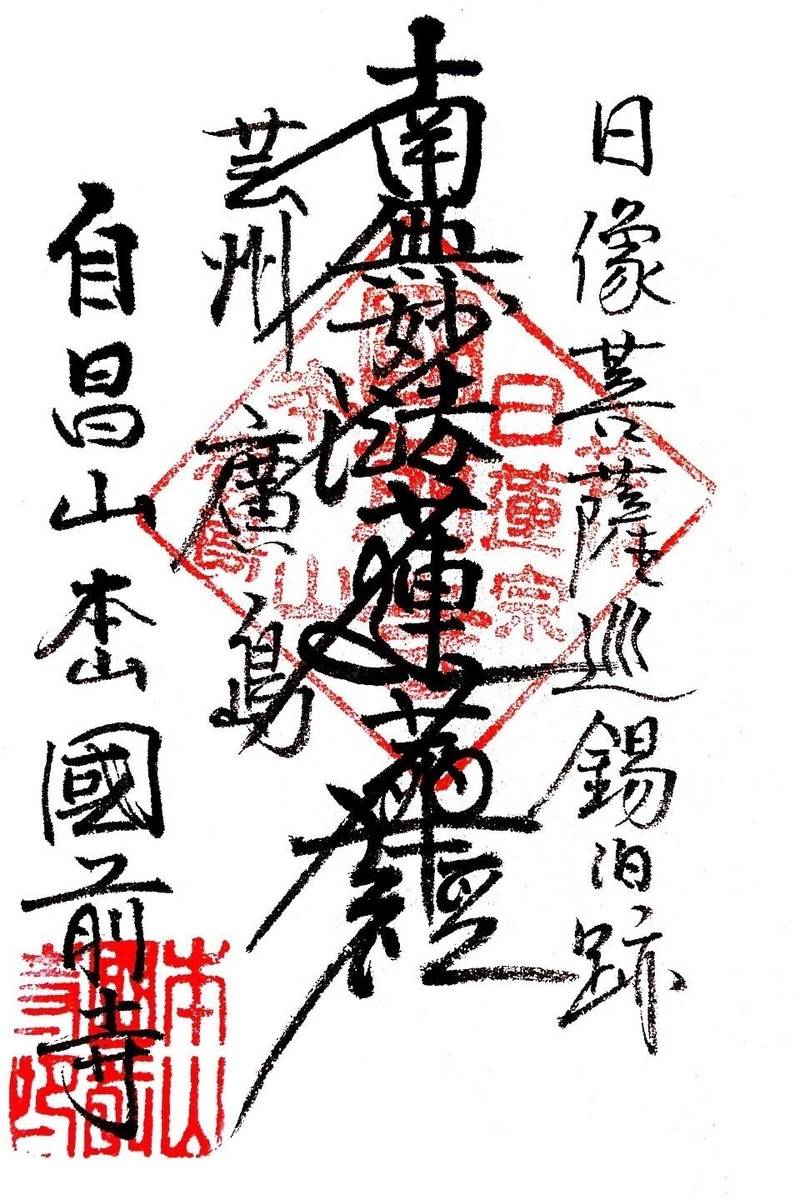 日像菩薩巡錫泊跡
南無妙法蓮華経
芸州廣島
自昌山本山國前寺
日蓮宗
本山